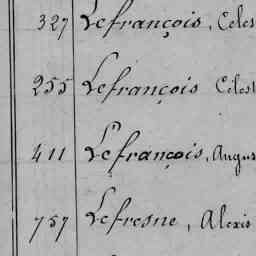 327 Lefrançois, Celes
255 Lefrançois Célest
411 Lefrançois, Augus
757 Lefresne, Alexis